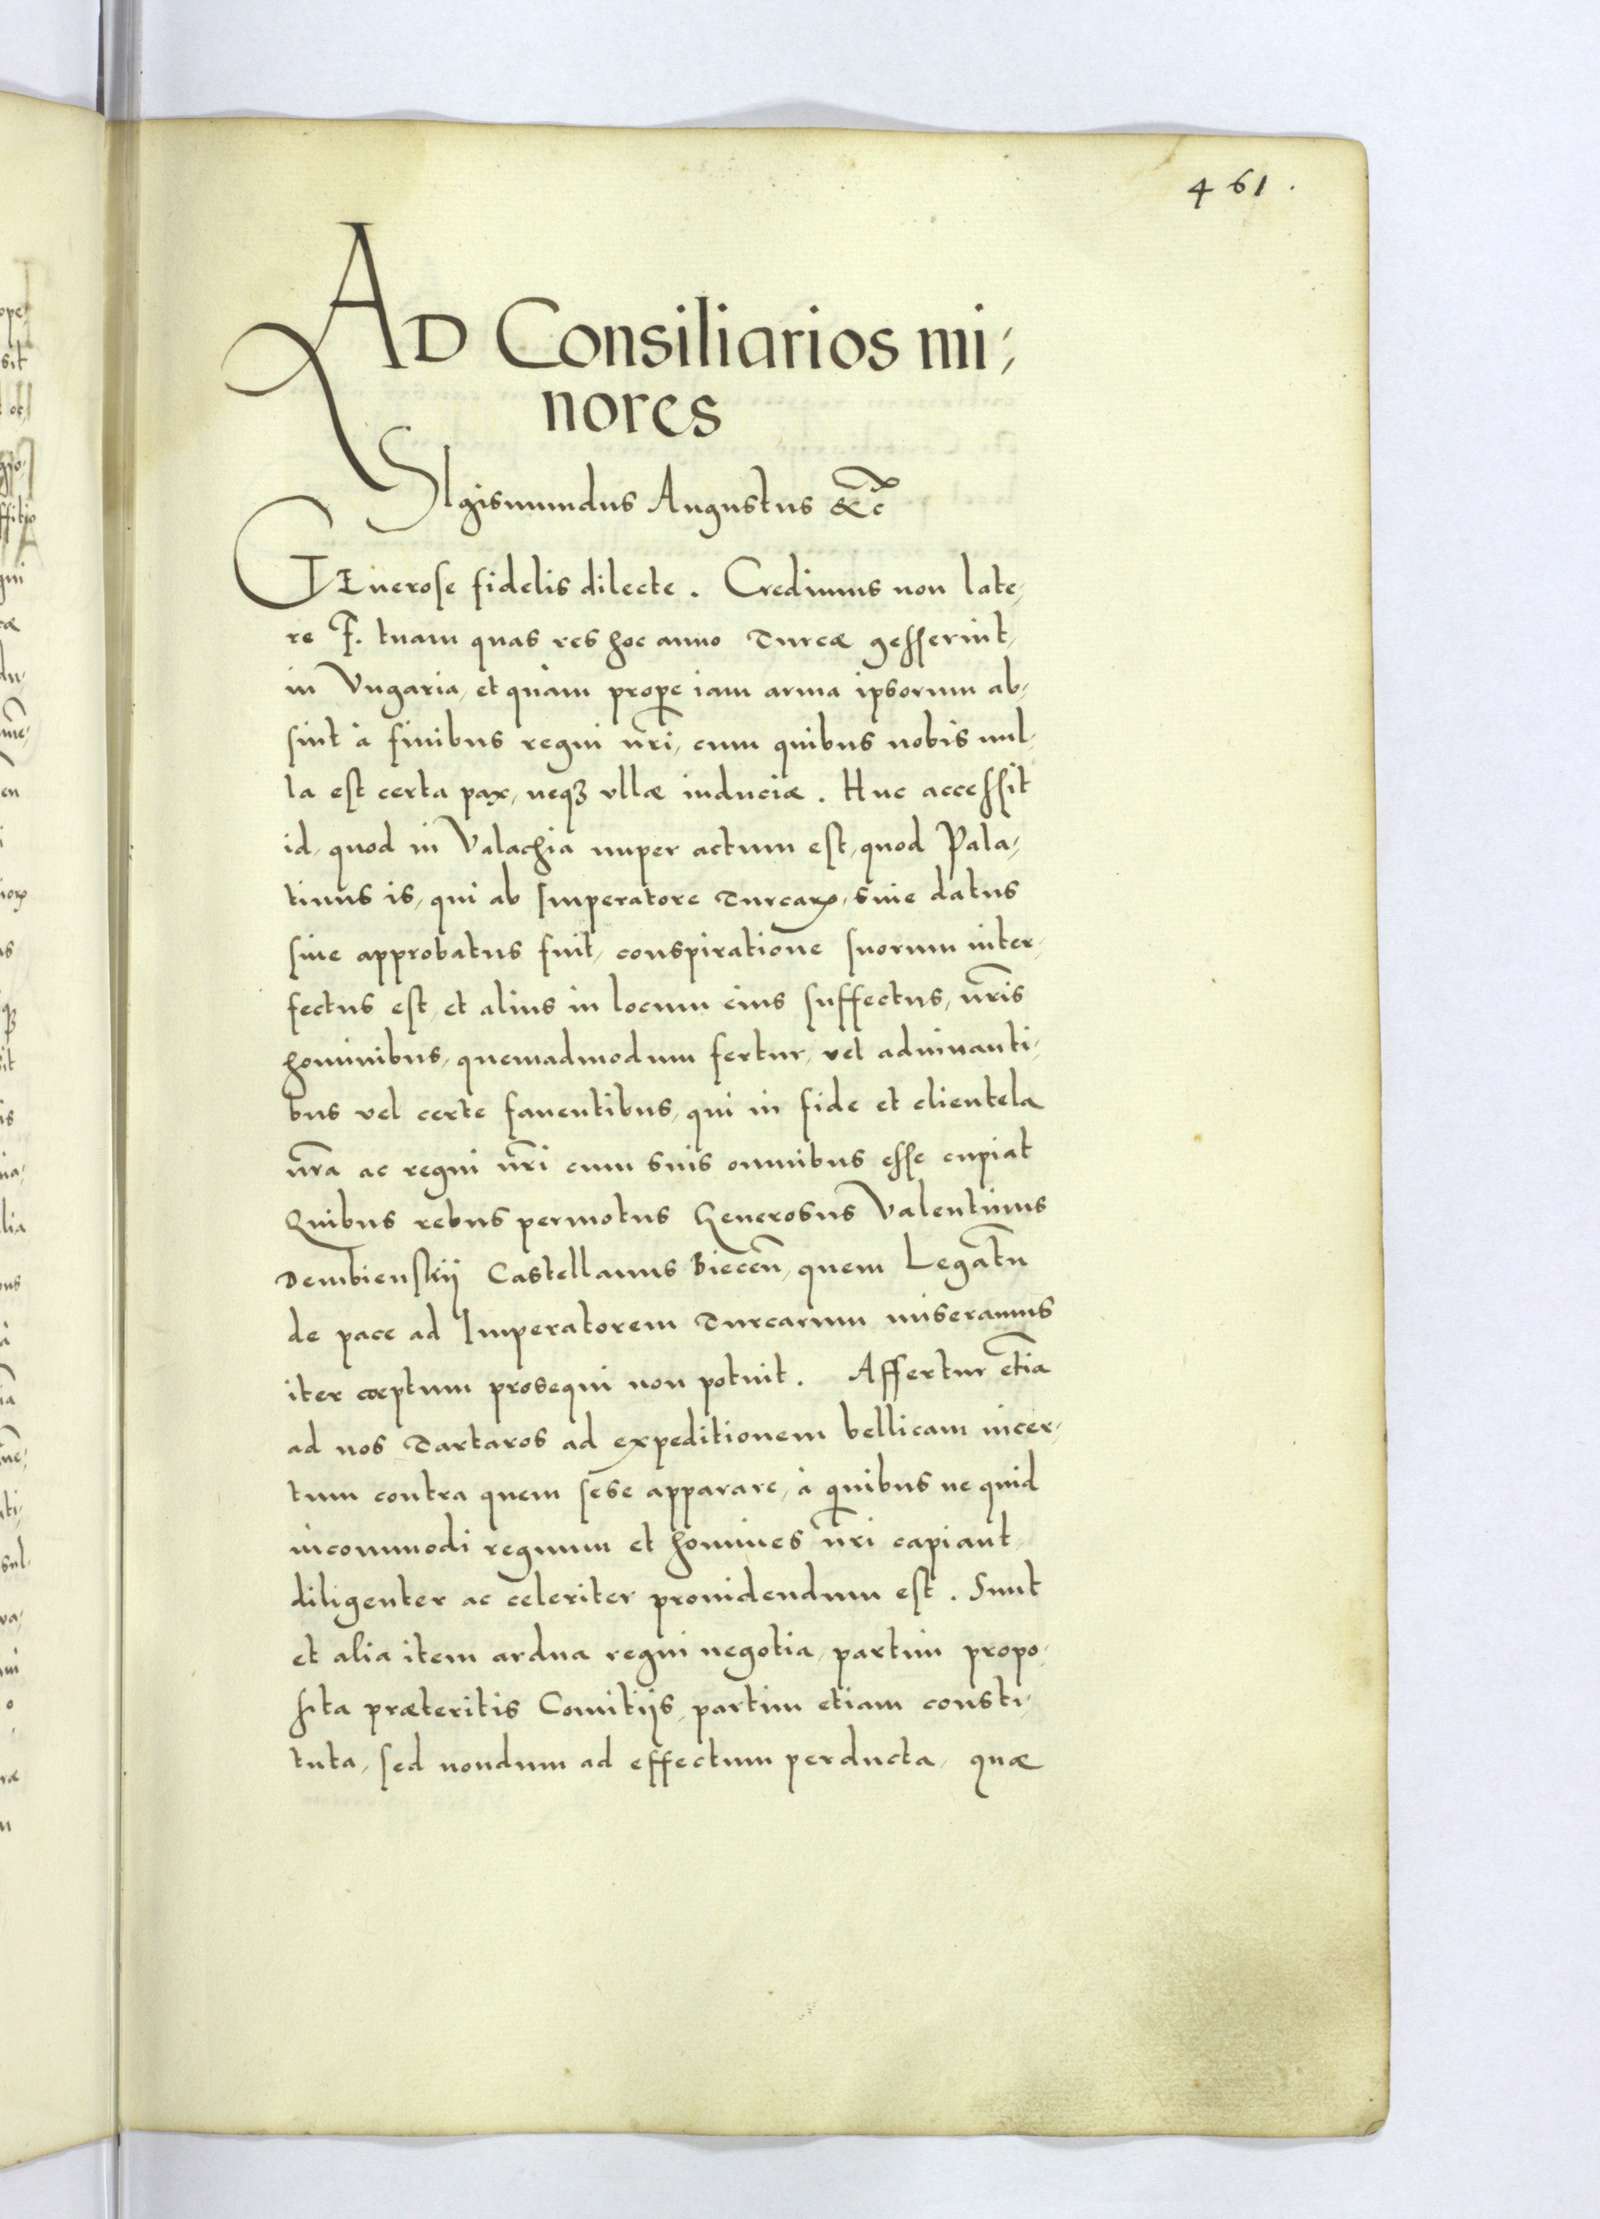 461.
AD Consiliarios mi,
nores
SIgismundus Augustus &c̄
GEnerose fidelis dilecte. Credimus non late,
re F. tuam quas res hoc anno Turcæ gesserint,
in Vngaria, et quàm prope iam arma ipsorum ab,
sint à finibus regni nr̄i, cum quibus nobis nul,
la est certa pax, neqȝ vllæ induciæ. Huc accessit
id, quod in Valachia nuper actum est, quod Pala,
tinus is, qui ab Imperatore Turcarꝝ, siue datus
siue approbatus fuit, conspiratione suorum inter,
fectus est, et alius in locum eius suffectus, nr̄is
hominibus, quemadmodum fertur, vel adiuuanti,
bus vel certe fauentibus, qui in fide et clientela
nr̄a ac regni nr̄i cum suis omnibus esse cupiat
Quibus rebus permotus Generosus Valentinus
Dembienskij Castellanus Biecen̄, quem Legatū
de pace ad Imperatorem Turcarum miseramus
iter cœptum prosequi non potuit. Affertur etiā
ad nos Tartaros ad expeditionem bellicam incer,
tum contra quem sese apparare, à quibus ne quid
incommodi regnum et homines nr̄i capiant,
diligenter ac celeriter prouidendum est. Sunt
et alia item ardua regni negotia, partim propo,
sita præteritis Comitijs, partim etiam consti,
tuta, sed nondum ad effectum perducta, quæ